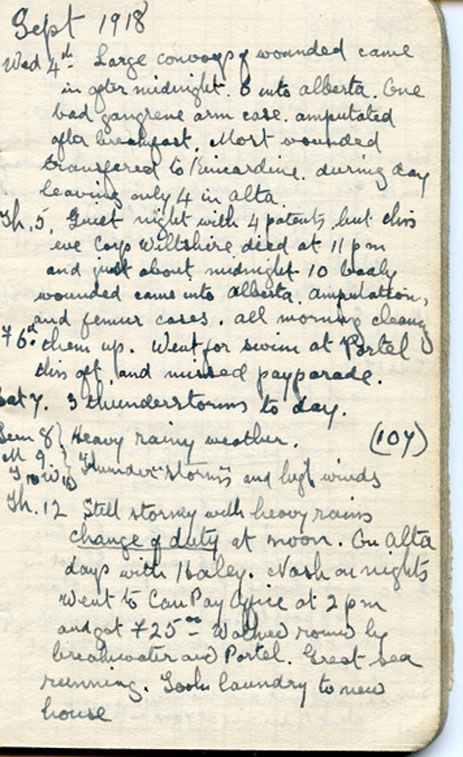 Sept 1918
Wed 4th Large convoys of wounded came
in after midnight. 8 into alberta. One
bad gangrene arm case. amputated
after breakfast. Most wounded
transfered to Kincardine. during day
leaving only 4 in alta.
Th. 5. Quiet night with 4 patents, but this
eve Corp Wiltshire died at 11 pm
and just about midnight 10 badly
wounded came into alberta. amputation,
and femur cases. all morning cleang
F 6th them up. Went for swim at Portel
this aft and missed payparade.
Sat 7. 3 thunderstorms to day.
Sun 8} Heavy rainy weather. (107)
M 9 } Thunder storms and high winds
T 10 W 11
Th. 12 Still stormey with heavy rains
change of duty at noon. On alta
days with Haley. Nash on nights
Went to Can Pay Office at 2 pm
and got £25 00 - Walked round by
breakwater and Portel. Great sea
running. Took laundry to new
house